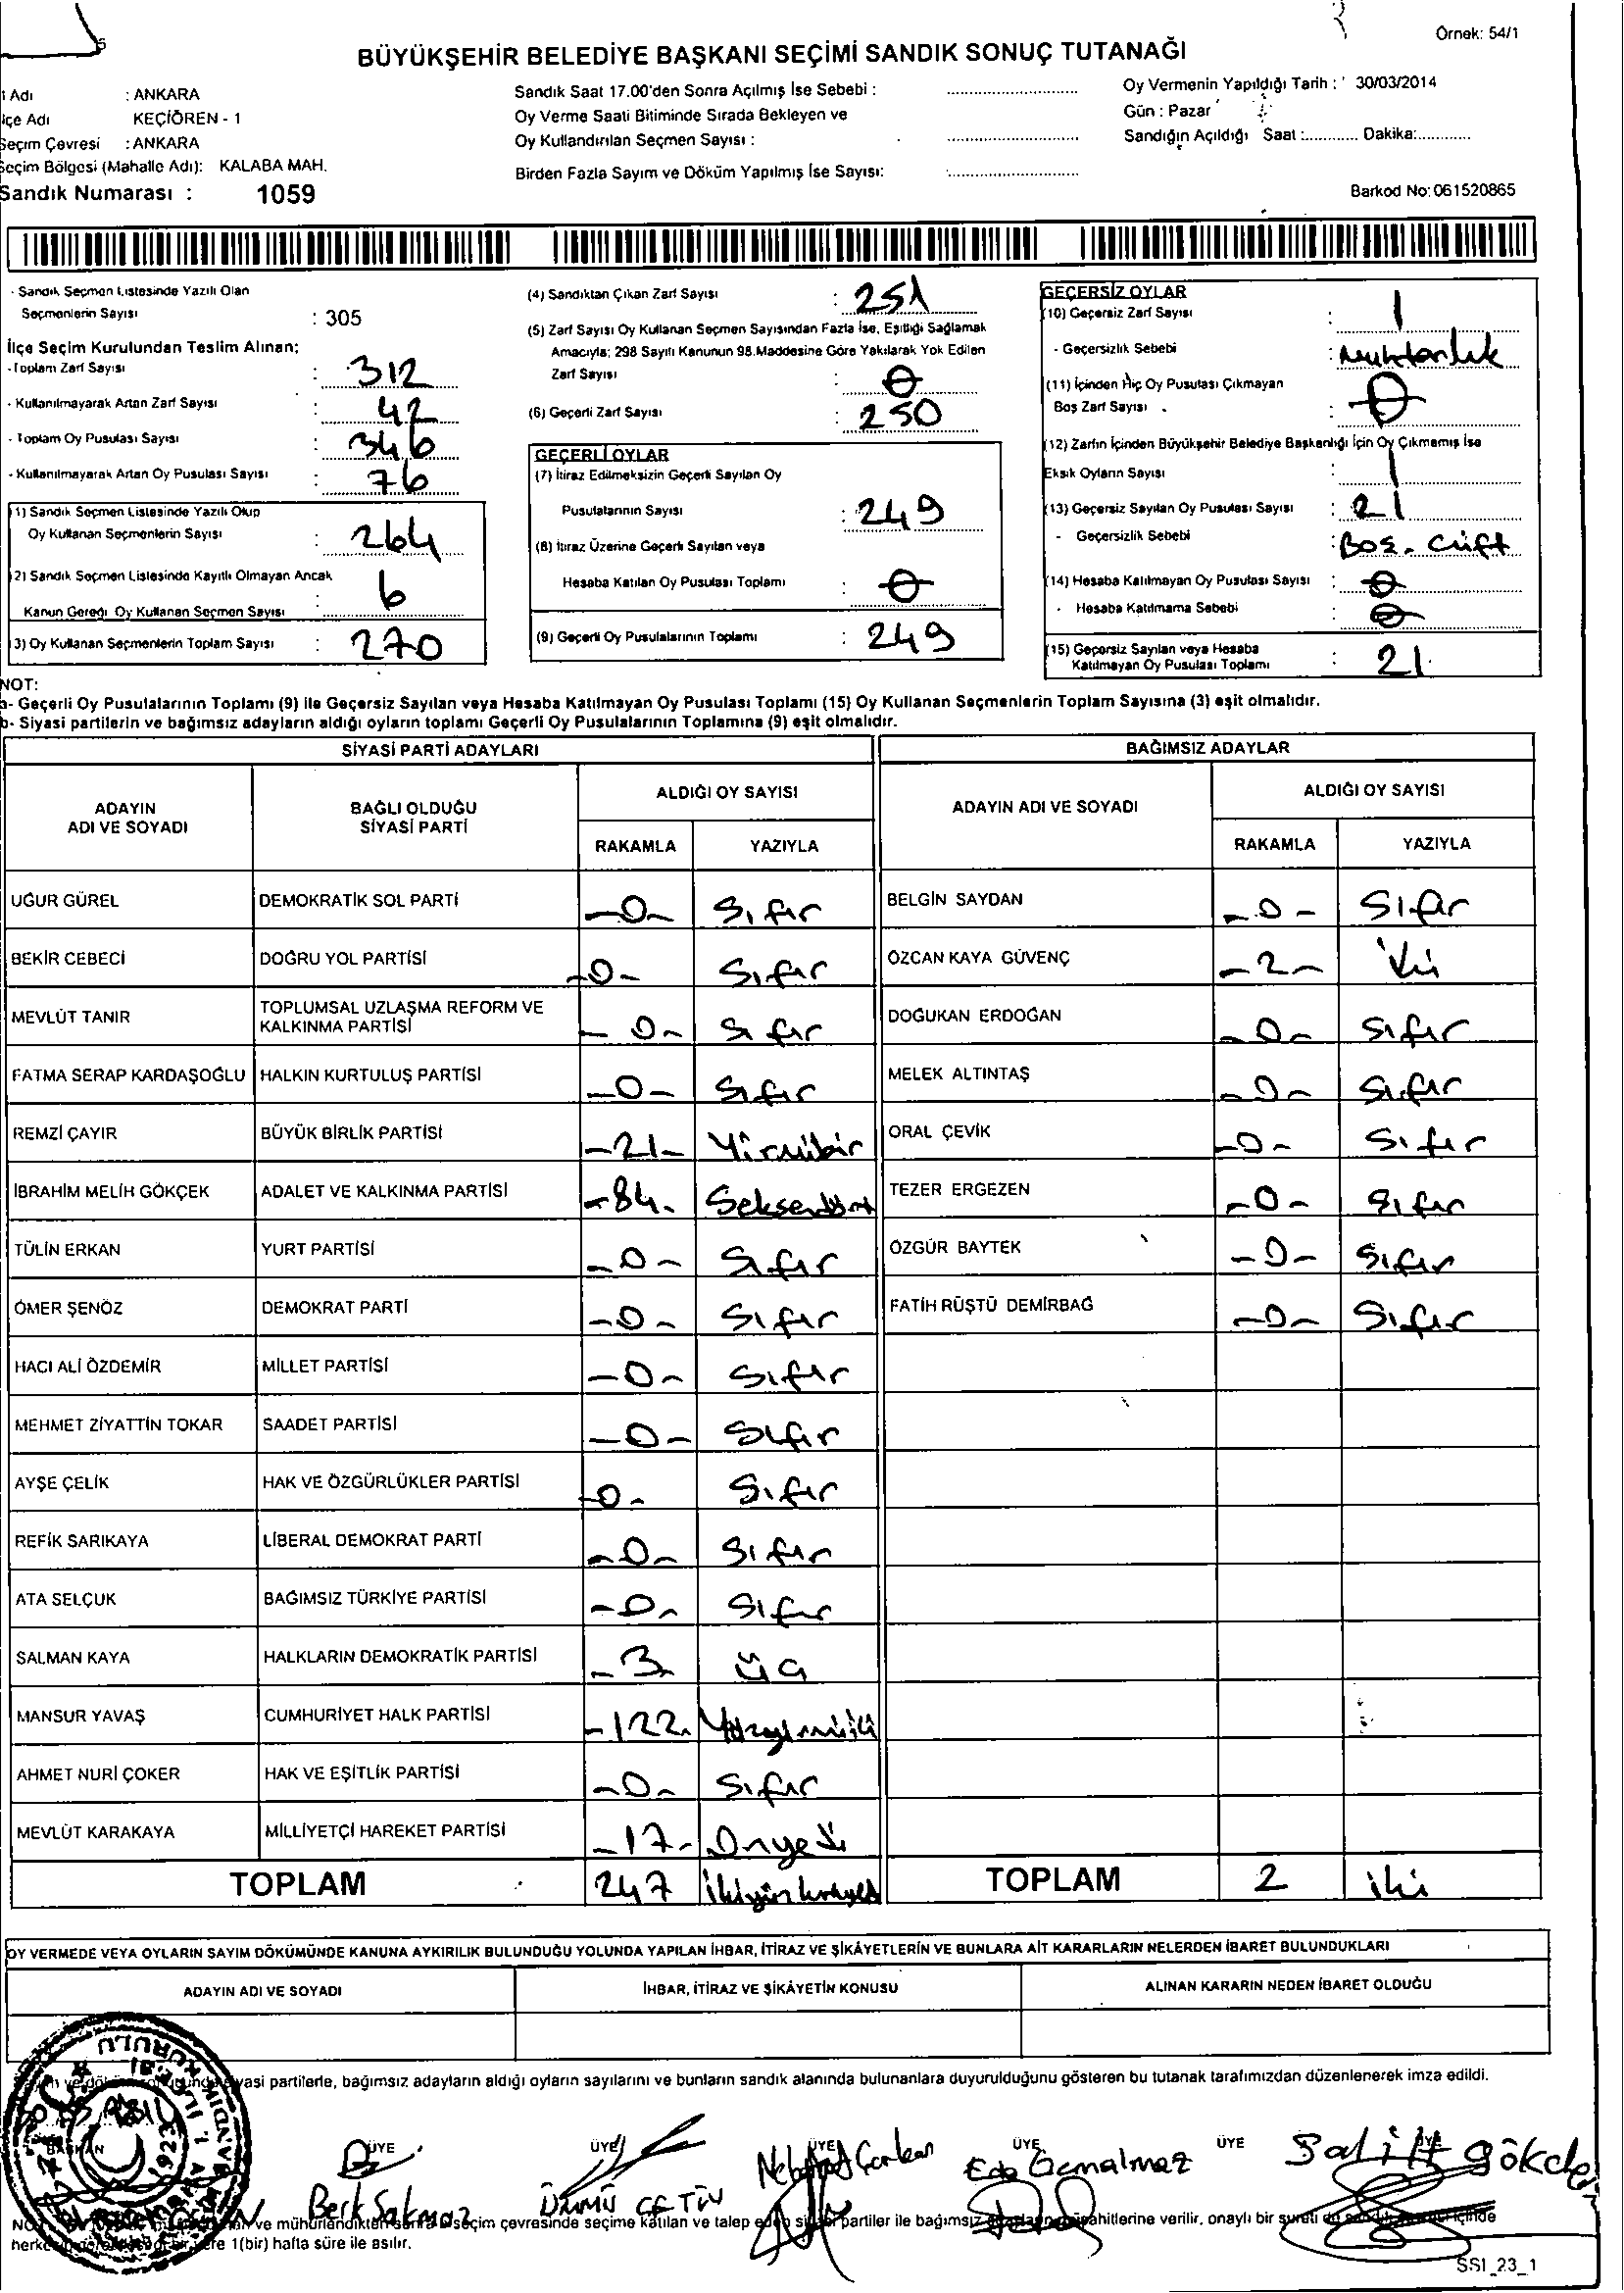 Örnek: 54/1
BÜYÜKŞEHİR BELEDİYE BAŞKANI SEÇİMİ SANDIK SONUÇ TUTANAĞI
Adı : ANKARA
İlçe Adı KEÇİÖREN - 1
Seçim Çevresi : ANKARA
Seçim Bölgesi (Mahalle Adı): KALABA MAH.
Sandık Numarası : 1059
Sandık Saat 17.00'den Sonra Açılmış İse Sebebi :
Oy Verme Saati Bitiminde Sırada Bekleyen ve
Oy Kullandırılan Seçmen Sayısı :
Birden Fazla Sayım ve Döküm Yapılmış İse Sayısı:
Oy Vermenin Yapıldığı Tarih : 30/03/2014
Gün : Pazar
Sandığın Açıldığı Saat :............ Dakika:............
Barkod No: 061520865
- Sandık Seçmen Listesinde Yazılı Olan
Seçmenlerin Sayısı : 305
İlçe Seçim Kurulundan Teslim Alınan;
- Toplam Zarf Sayısı : 312
- Kullanılmayarak Artan Zarf Sayısı : 42
- Toplam Oy Pusulası Sayısı : 346
- Kullanılmayarak Artan Oy Pusulası Sayısı : 76
(1) Sandık Seçmen Listesinde Yazılı Olup
Oy Kullanan Seçmenlerin Sayısı : 264
(2) Sandık Seçmen Listesinde Kayıtlı Olmayan Ancak
Kanun Gereği Oy Kullanan Seçmen Sayısı : 6
(3) Oy Kullanan Seçmenlerin Toplam Sayısı : 270
(4) Sandıktan Çıkan Zarf Sayısı : 251
(5) Zarf Sayısı Oy Kullanan Seçmen Sayısından Fazla İse, Eşitliği Sağlamak
Amacıyla; 298 Sayılı Kanunun 98.Maddesine Göre Yakılarak Yok Edilen
Zarf Sayısı : 0
(6) Geçerli Zarf Sayısı : 250
GEÇERLİ OYLAR
(7) İtiraz Edilmeksizin Geçerli Sayılan Oy
Pusulalarının Sayısı : 249
(8) İtiraz Üzerine Geçerli Sayılan veya
Hesaba Katılan Oy Pusulası Toplamı : 0
(9) Geçerli Oy Pusulalarının Toplamı : 249
GEÇERSİZ OYLAR
(10) Geçersiz Zarf Sayısı : 1
- Geçersizlik Sebebi : Muhtarlık
(11) İçinden Hiç Oy Pusulası Çıkmayan
Boş Zarf Sayısı : 0
(12) Zarfın İçinden Büyükşehir Belediye Başkanlığı İçin Oy Çıkmamış İse
Eksik Oyların Sayısı : 1
(13) Geçersiz Sayılan Oy Pusulası Sayısı : 21
- Geçersizlik Sebebi : Boş - Çift
(14) Hesaba Katılmayan Oy Pusulası Sayısı : 0
- Hesaba Katılmama Sebebi : 0
(15) Geçersiz Sayılan veya Hesaba
Katılmayan Oy Pusulası Toplamı : 21
NOT:
a- Geçerli Oy Pusulalarının Toplamı (9) ile Geçersiz Sayılan veya Hesaba Katılmayan Oy Pusulası Toplamı (15) Oy Kullanan Seçmenlerin Toplam Sayısına (3) eşit olmalıdır.
b- Siyasi partilerin ve bağımsız adayların aldığı oyların toplamı Geçerli Oy Pusulalarının Toplamına (9) eşit olmalıdır.
SİYASİ PARTİ ADAYLARI
ADAYIN ADI VE SOYADI BAĞLI OLDUĞU SİYASİ PARTİ ALDIĞI OY SAYISI
RAKAMLA YAZIYLA
UĞUR GÜREL DEMOKRATİK SOL PARTİ -0- Sıfır
BEKİR CEBECİ DOĞRU YOL PARTİSİ -0- Sıfır
MEVLÜT TANIR TOPLUMSAL UZLAŞMA REFORM VE KALKINMA PARTİSİ -0- Sıfır
FATMA SERAP KARDAŞOĞLU HALKIN KURTULUŞ PARTİSİ -0- Sıfır
REMZİ ÇAYIR BÜYÜK BİRLİK PARTİSİ -21- Yirmibir
İBRAHİM MELİH GÖKÇEK ADALET VE KALKINMA PARTİSİ -84- Seksendört
TÜLİN ERKAN YURT PARTİSİ -0- Sıfır
ÖMER ŞENÖZ DEMOKRAT PARTİ -0- Sıfır
HACI ALİ ÖZDEMİR MİLLET PARTİSİ -0- Sıfır
MEHMET ZİYATTİN TOKAR SAADET PARTİSİ -0- Sıfır
AYŞE ÇELİK HAK VE ÖZGÜRLÜKLER PARTİSİ -0- Sıfır
REFİK SARIKAYA LİBERAL DEMOKRAT PARTİ -0- Sıfır
ATA SELÇUK BAĞIMSIZ TÜRKİYE PARTİSİ -0- Sıfır
SALMAN KAYA HALKLARIN DEMOKRATİK PARTİSİ -3- üç
MANSUR YAVAŞ CUMHURİYET HALK PARTİSİ -122-
AHMET NURİ ÇOKER HAK VE EŞİTLİK PARTİSİ -0- Sıfır
MEVLÜT KARAKAYA MİLLİYETÇİ HAREKET PARTİSİ -17- Onyedi
TOPLAM 247
BAĞIMSIZ ADAYLAR
ADAYIN ADI VE SOYADI ALDIĞI OY SAYISI
RAKAMLA YAZIYLA
BELGİN SAYDAN -0- Sıfır
ÖZCAN KAYA GÜVENÇ -2- iki
DOĞUKAN ERDOĞAN -0- Sıfır
MELEK ALTINTAŞ -0- Sıfır
ORAL ÇEVİK -0- Sıfır
TEZER ERGEZEN -0- Sıfır
ÖZGÜR BAYTEK -0- Sıfır
FATİH RÜŞTÜ DEMİRBAĞ -0- Sıfır
TOPLAM 2 iki
OY VERMEDE VEYA OYLARIN SAYIM DÖKÜMÜNDE KANUNA AYKIRILIK BULUNDUĞU YOLUNDA YAPILAN İHBAR, İTİRAZ VE ŞİKÂYETLERİN VE BUNLARA AİT KARARLARIN NELERDEN İBARET BULUNDUKLARI
ADAYIN ADI VE SOYADI İHBAR, İTİRAZ VE ŞİKÂYETİN KONUSU ALINAN KARARIN NEDEN İBARET OLDUĞU
siyasi partilerle, bağımsız adayların aldığı oyların sayılarını ve bunların sandık alanında bulunanlara duyurulduğunu gösteren bu tutanak tarafımızdan düzenlenerek imza edildi.
BAŞKAN ÜYE ÜYE ÜYE ÜYE ÜYE ÜYE
Berk Sakmaz ÜMMÜ ÇETİN Eda Genalmaz Salih Gökde
ve mühürlendikten sonra seçim çevresinde seçime katılan ve talep eden siyasi partiler ile bağımsız verilir, onaylı bir sureti içinde
1(bir) hafta süre ile asılır.
SSI_23_1